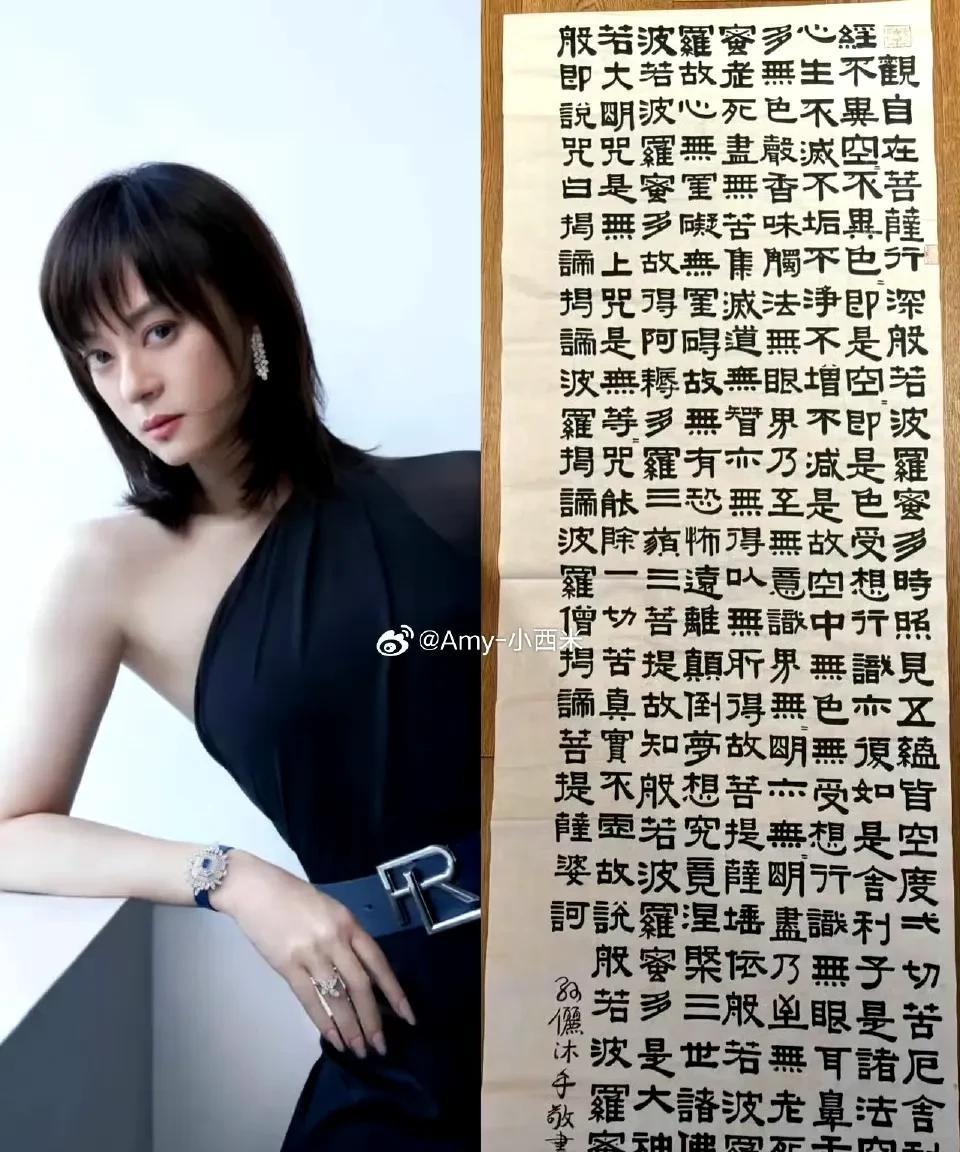 般若波羅蜜多心經
觀自在菩薩行深般若波羅蜜多時照見五蘊皆空度弌切苦厄舍利
不異空=不異色=即是空=即是色受想行識亦復如是舍利子是諸法空
生不滅不垢不淨不增不減是故空中無色無受想行識無眼耳鼻舌
無色聲香味觸法無眼界乃至無意識界無=明亦無=明盡乃至無老死
老死盡無苦集滅道無智亦無得以無所得故菩提薩埵依般若波羅蜜
故心無罣礙無罣碍故無有恐怖遠離顛倒夢想究竟涅槃三世諸佛
若波羅蜜多故得阿耨多羅三藐三菩提故知般若波羅蜜多是大神
大明咒是無上咒是無等=咒能除一切苦真實不虛故說般若波羅蜜
即說咒曰揭諦揭諦波羅揭諦波羅僧揭諦菩提薩婆訶
孫儷沐手敬書
@Amy-小西米